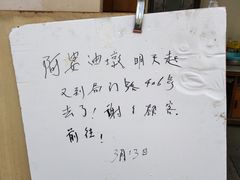 阿婆迪墩 明天起
又到局门路406号
去了!谢〻顾客.
前往!
3月13日